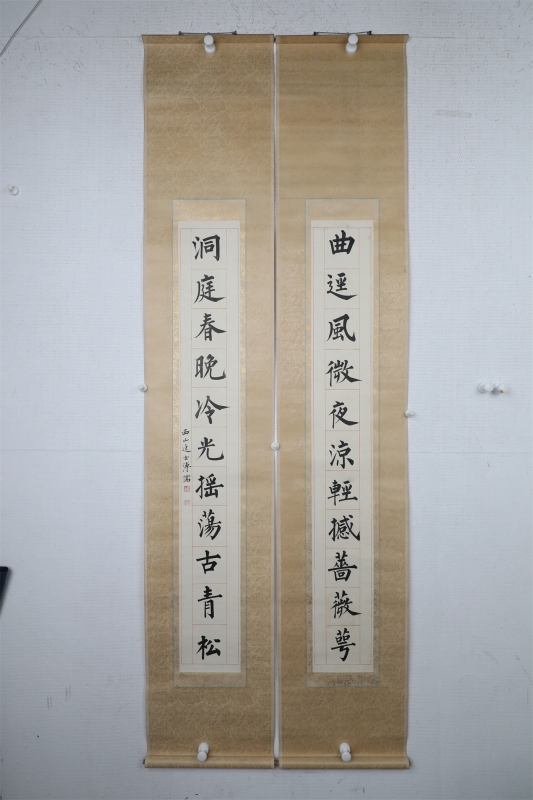 曲逕風微夜涼輕撼薔薇萼
洞庭春晚冷光摇蕩古青松
西山逸士溥儒